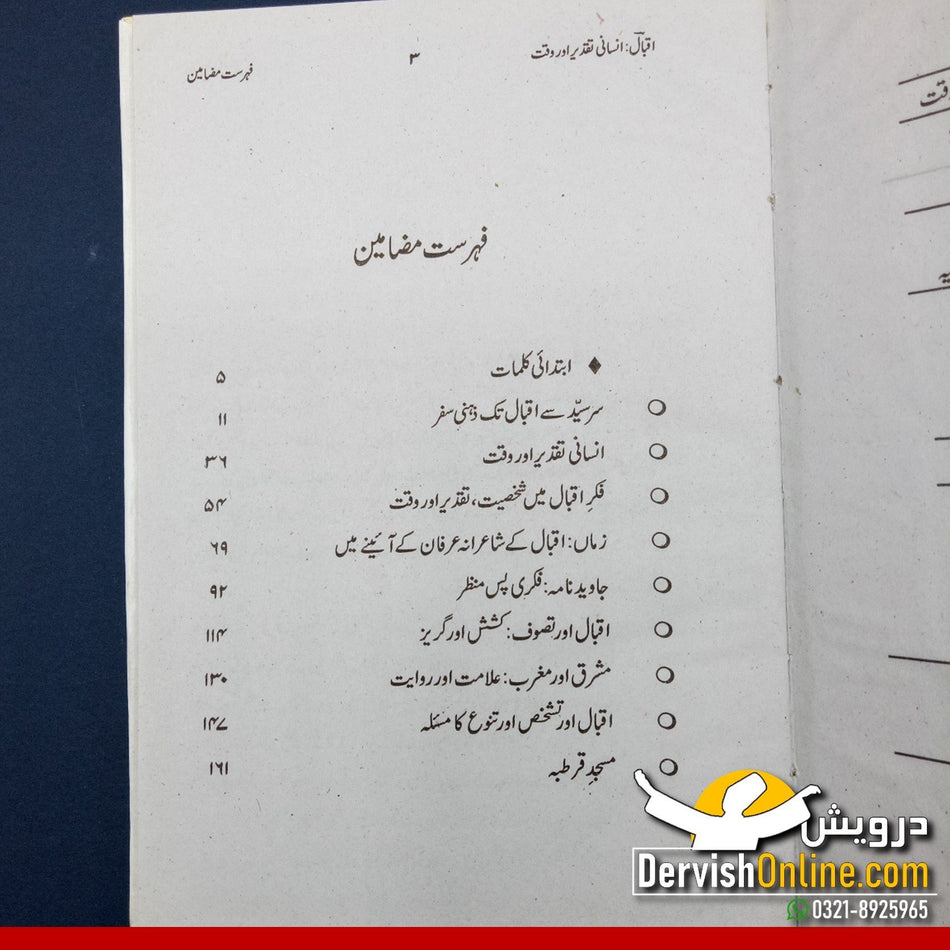 اقبالؔ: انسانی تقدیر اور وقت ۳ فہرست مضامین
فہرست مضامین
ابتدائی کلمات ۵
سر سیّد سے اقبال تک ذہنی سفر ۱۱
انسانی تقدیر اور وقت ۳۶
فکرِ اقبال میں شخصیت، تقدیر اور وقت ۵۴
زماں: اقبال کے شاعرانہ عرفان کے آئینے میں ۶۹
جاوید نامہ: فکری پس منظر ۹۲
اقبال اور تصوف: کشش اور گریز ۱۱۴
مشرق اور مغرب: علامت اور روایت ۱۳۰
اقبال اور تشخص اور تنوع کا مسئلہ ۱۴۷
مسجدِ قرطبہ ۱۶۱
درویش
DervishOnline.com
0321-8925965